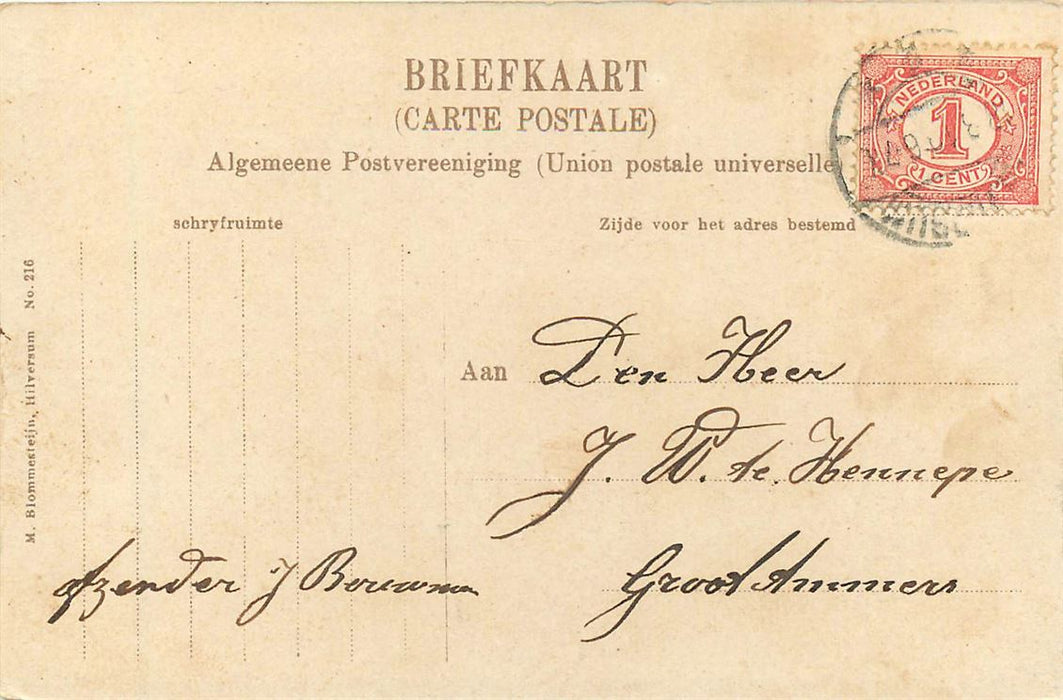 BRIEFKAART
(CARTE POSTALE)
Algemeene Postvereeniging (Union postale universelle
NEDERLAND
1
1 CENT
schryfruimte
Zijde voor het adres bestemd
M. Blommesteijn, Hilversum No. 216
Aan Den Heer
J. W. te Hennepe
Groot Ammers
afzender J Bouwman